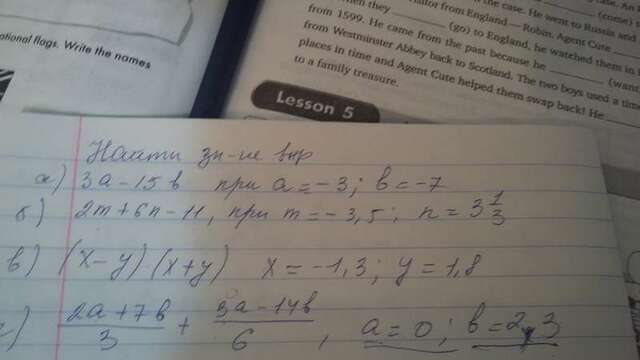 ational flags. Write the names
the case. He went to Russia and
visitor from England — Robin. Agent Cute
when they ________ (go) to England, he watched them in
from 1599. He came from the past because he ________ (want
from Westminster Abbey back to Scotland. The two boys used a time
places in time and Agent Cute helped them swap back! He
to a family treasure.
Lesson 5
Найти зн-ие выр
а) 3a - 15b при a = -3; b = -7
б) 2m + 6n - 11, при m = -3,5; n = 3 1/3
в) (x - y) · (x + y) x = -1,3; y = 1,8
г) (2a + 7b)/3 + (3a - 14b)/6, a = 0; b = 2,3